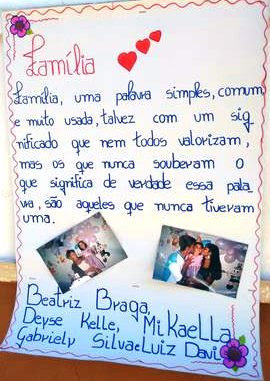 Família
Família, uma palavra simples, comum
e muito usada, talvez com um sig
nificado que nem todos valorizam,
mas os que nunca souberam o
que significa de verdade essa pala
vra, são aqueles que nunca tiveram
uma.
Beatriz Braga,
Deyse Kelle, Mikaella
Gabriely Silva e Luiz Davi